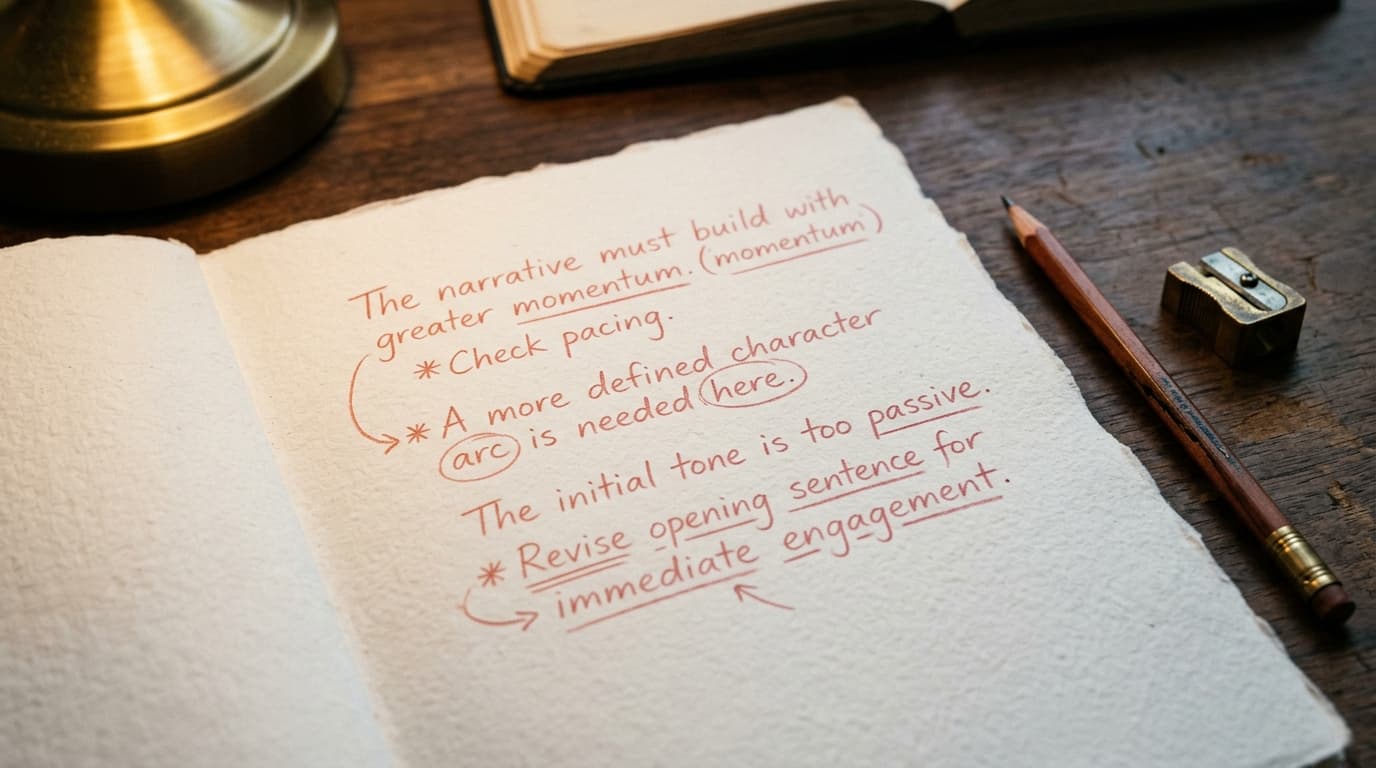 The narrative must build with
greater momentum. (momentum)
* Check pacing.
* A more defined character
arc is needed here.
The initial tone is too passive.
* Revise opening sentence for
immediate engagement.